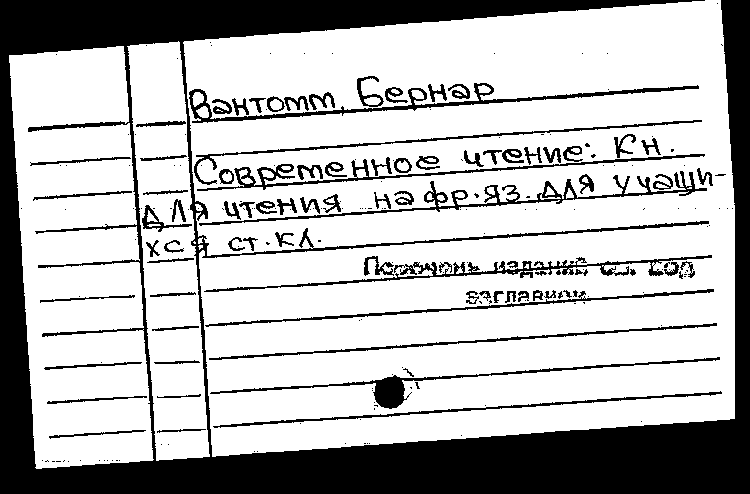 Вантомт, Бернар
Современное чтение: Кн.
для чтения на фр. яз. для учащи-
хся ст. кл.
Перечень изданий см. под
заглавием